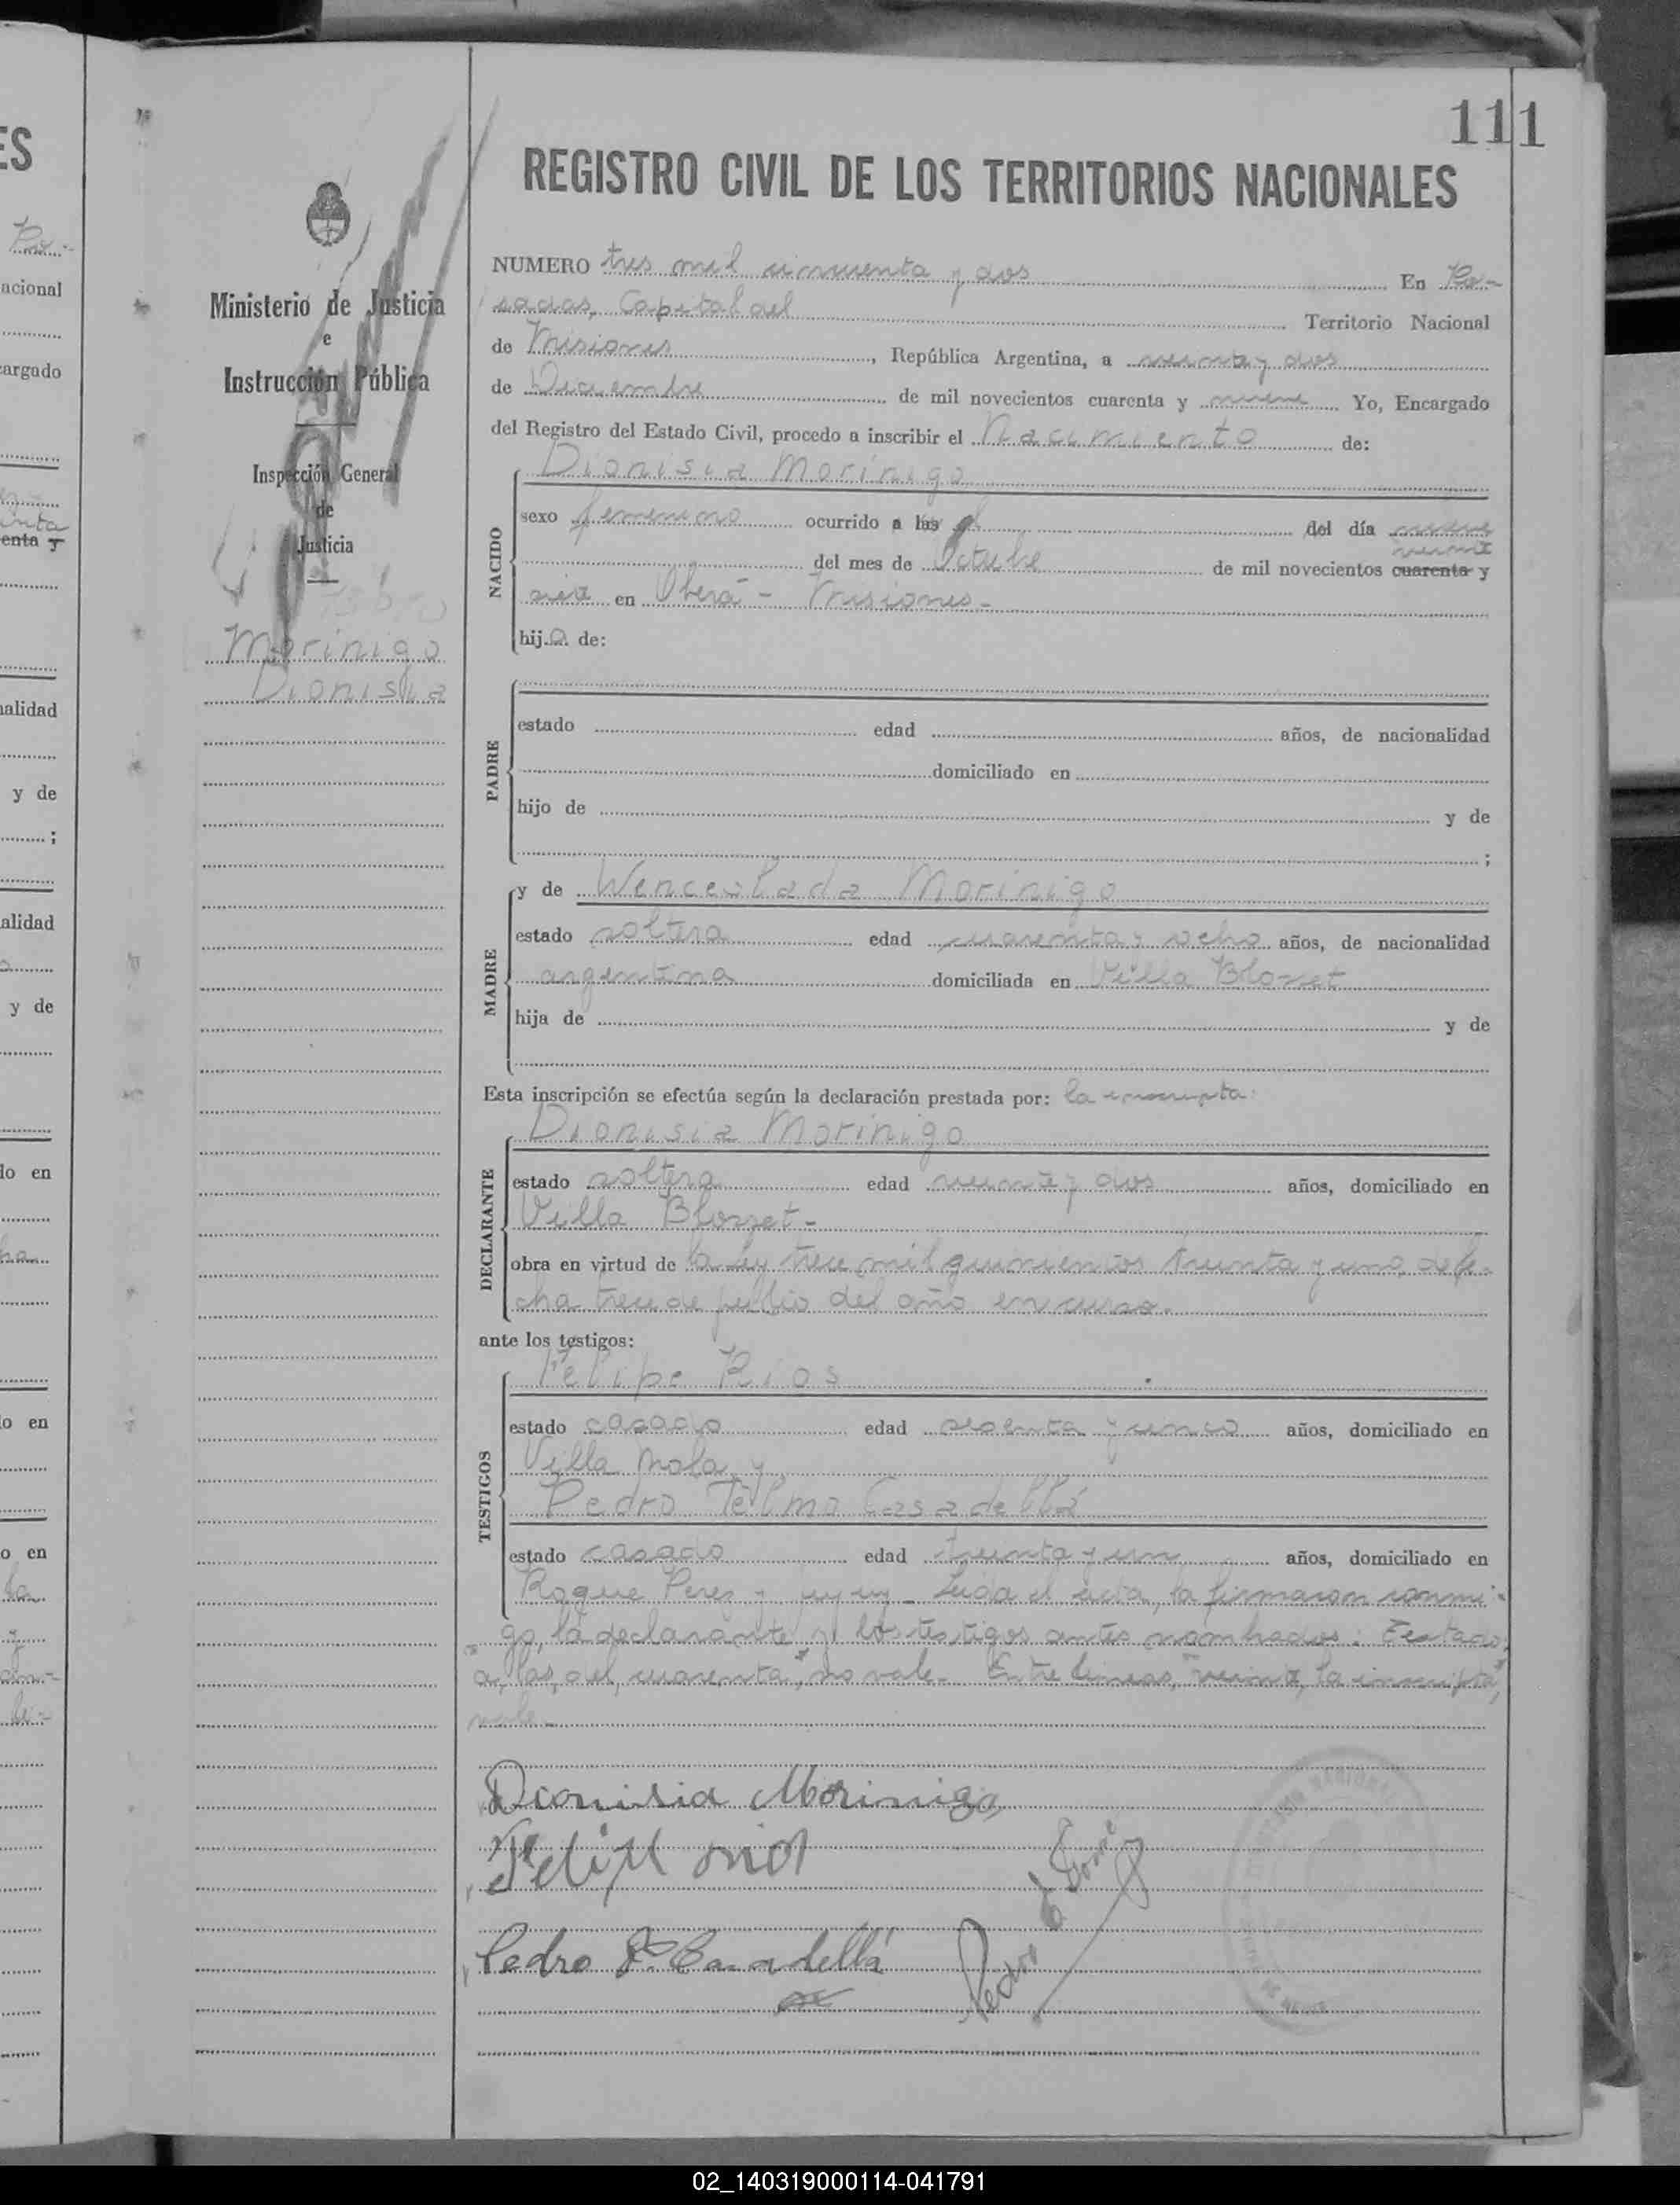 111
REGISTRO CIVIL DE LOS TERRITORIOS NACIONALES
Ministerio de Justicia
e
Instrucción Pública
Inspección General
de
Justicia
Morinigo
Dionisia
NUMERO tres mil cincuenta y dos En Po-
sadas, Capital del Territorio Nacional
de Misiones, República Argentina, a veinte y dos
de Diciembre de mil novecientos cuarenta y nueve Yo, Encargado
del Registro del Estado Civil, procedo a inscribir el Nacimiento de:
Dionisia Morinigo
NACIDO
sexo femenino ocurrido a las el del día nueve
veinte
del mes de Octubre de mil novecientos cuarenta y
seis en Oberá - Misiones-
hija de:
PADRE
estado edad años, de nacionalidad
domiciliado en
hijo de y de
;
MADRE
y de Wenceslada Morinigo
estado soltera edad cuarenta y ocho años, de nacionalidad
argentina domiciliada en Villa Blosset
hija de y de
Esta inscripción se efectúa según la declaración prestada por: la inscripta:
Dionisia Morinigo
DECLARANTE
estado soltera edad veinte y dos años, domiciliado en
Villa Blosset-
obra en virtud de la Ley trece mil quinientos treinta y uno, de fe-
cha trece de julio del año en curso.
ante los testigos:
Felipe Rios
TESTIGOS
estado casado edad sesenta y cinco años, domiciliado en
Villa Mola y
Pedro Telmo Casadellá
estado casado edad treinta y un años, domiciliado en
Roque Perez y Jujuy - Leida el acta, la firmaron conmi-
go, la declarante y los testigos antes nombrados: Testado:
"a, las, del, cuarenta", no vale- Entre lineas, "veinte, la inscripta",
vale-
Dionisia Morinigo
Pedro T. Casadellá
02_140319000114-041791